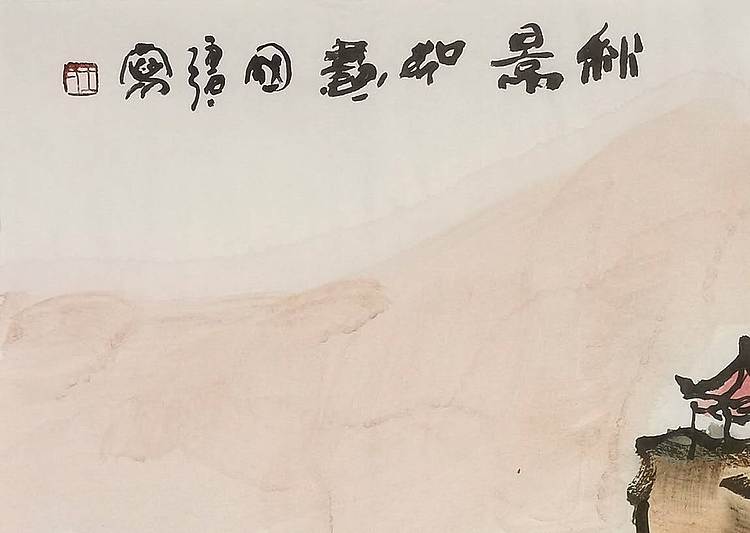 秋景如畫國強寫